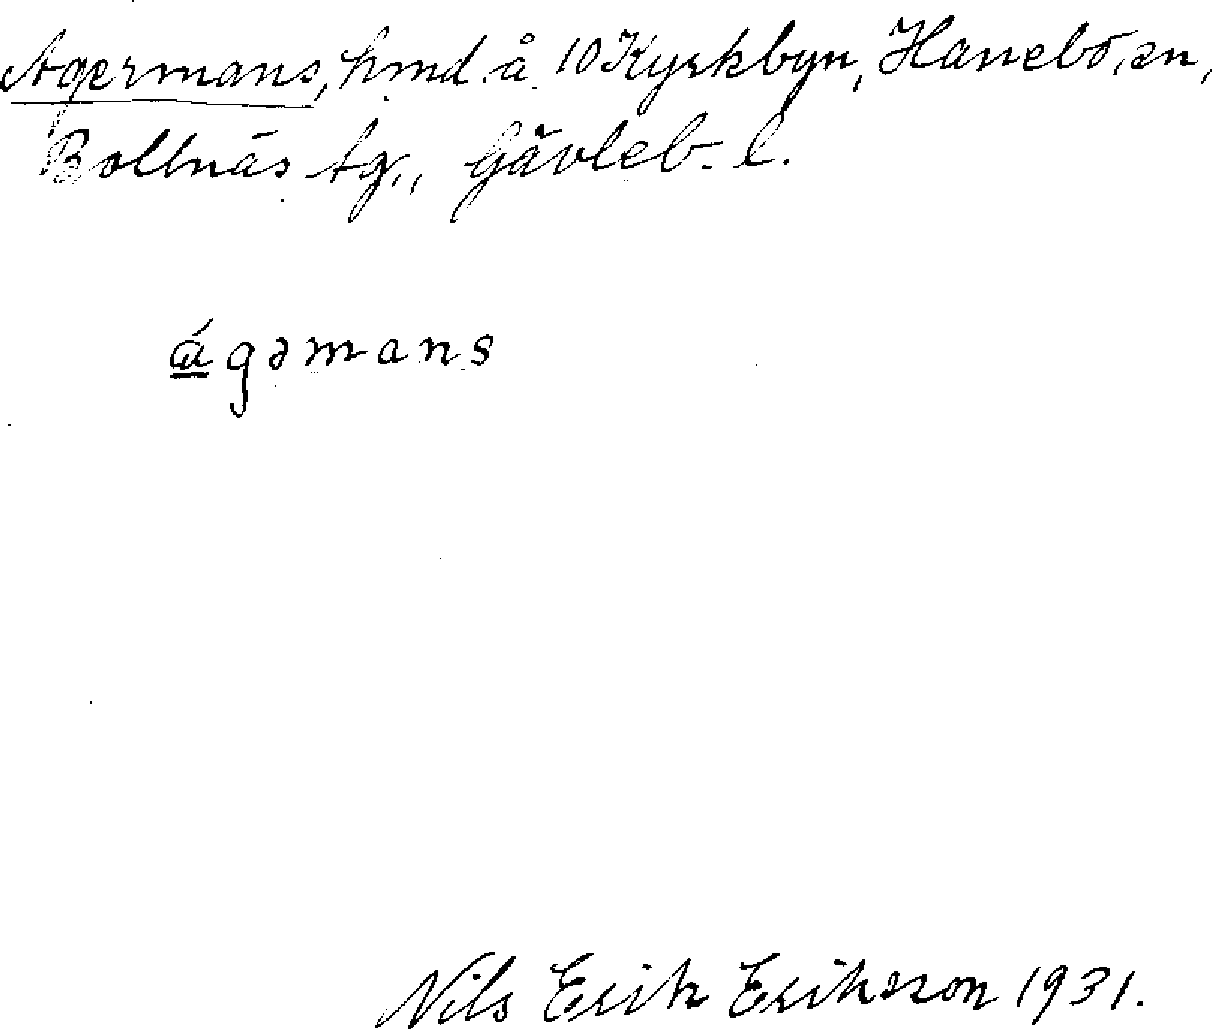 Agermans, hmd å 10 Kyrkbyn, Hanebo, sn,
Bollnäs tg., Gävleb. l.
ágəmans
Nils Erik Erikson 1931.